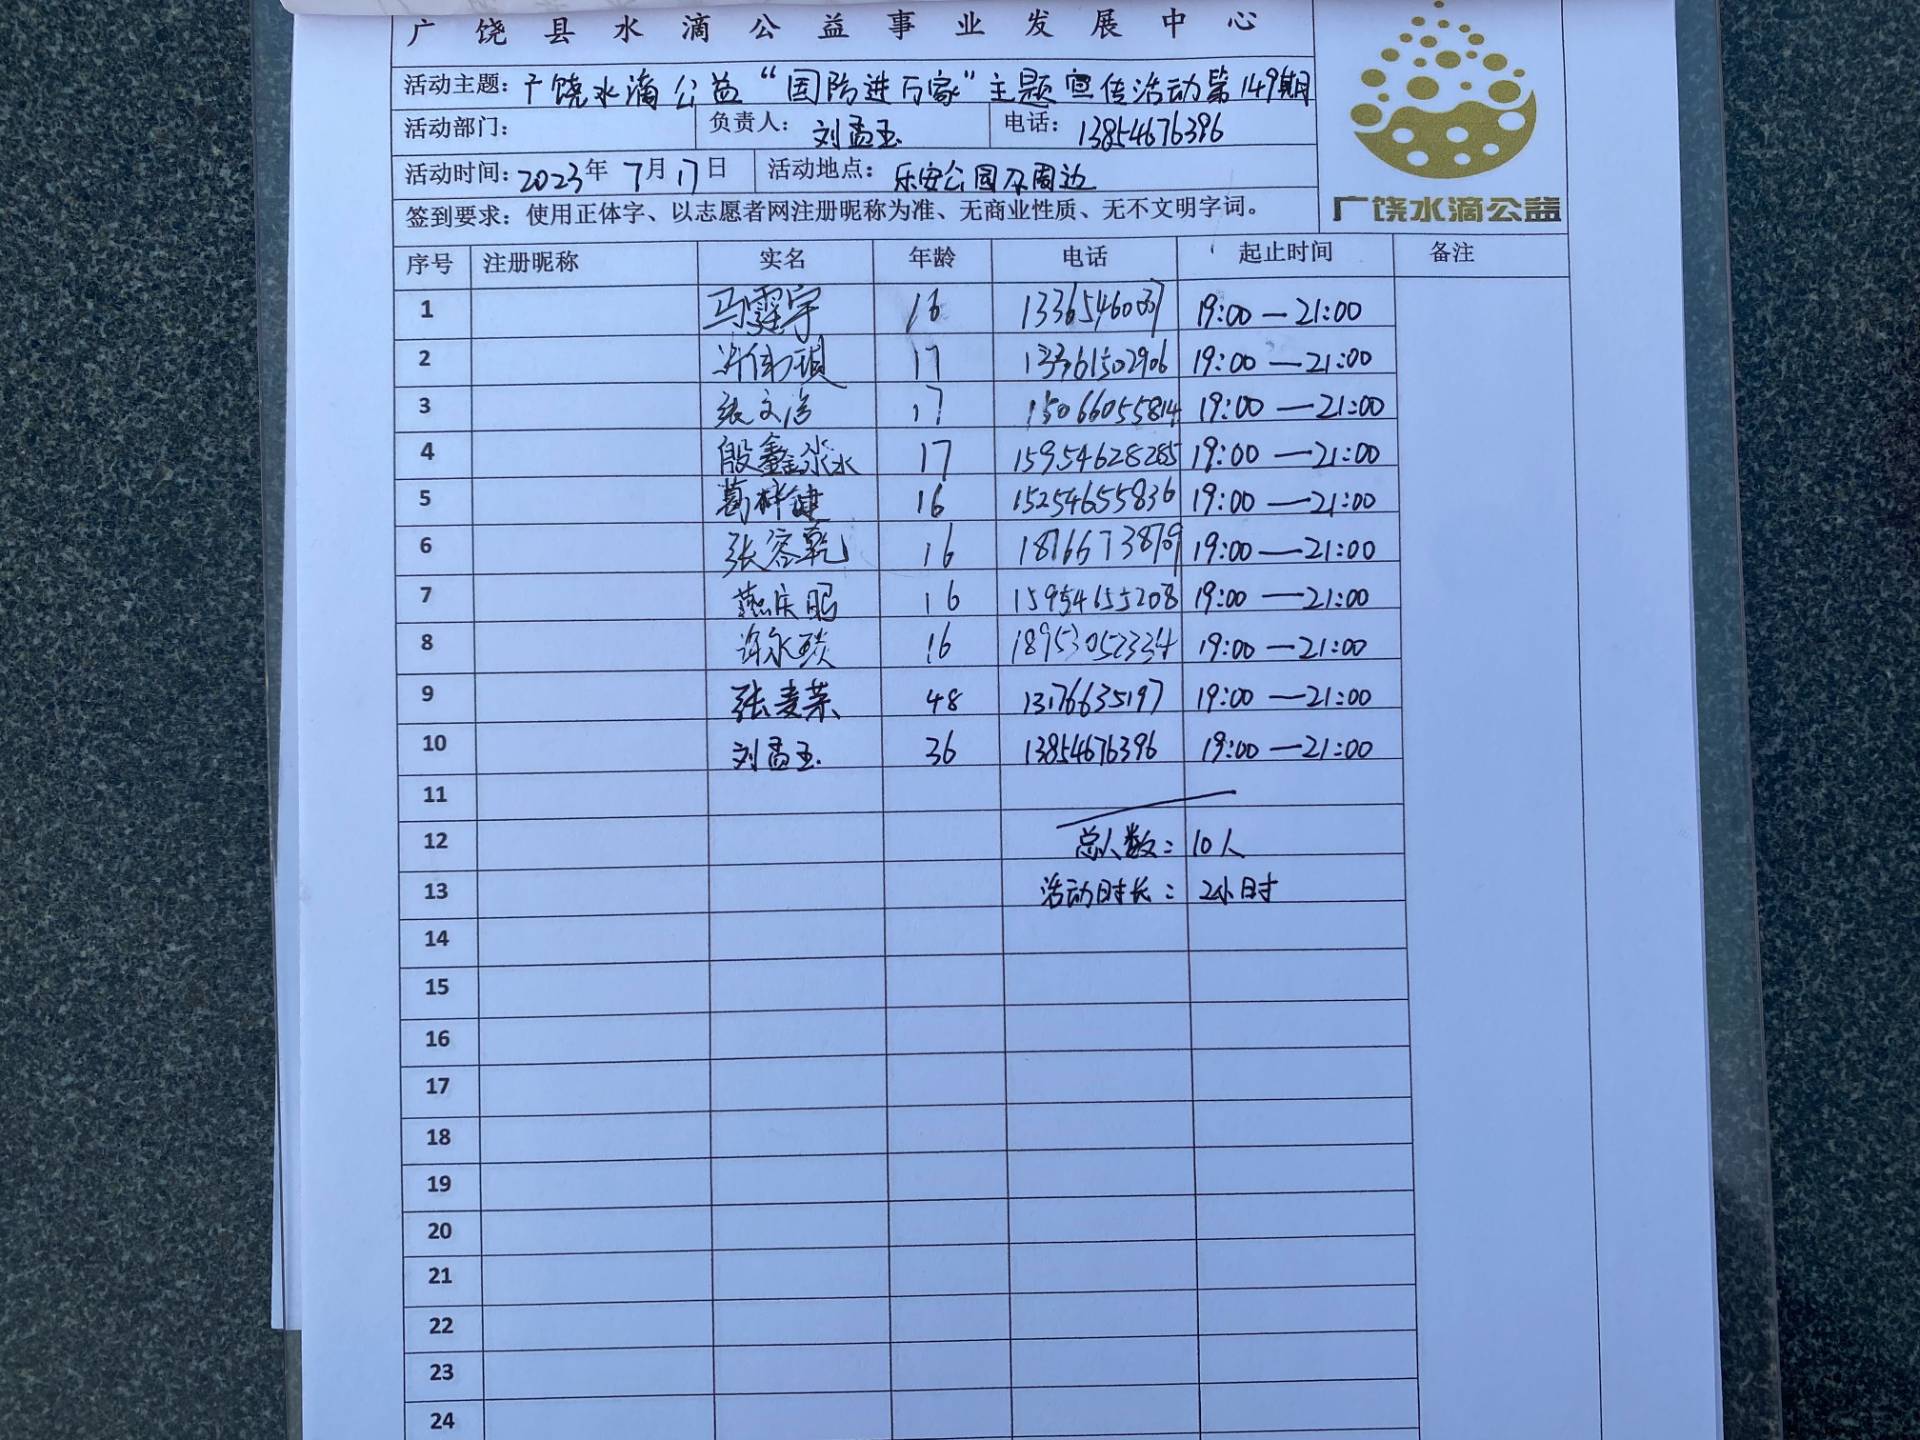 广饶县水滴公益事业发展中心
活动主题：广饶水滴公益“国防进万家”主题宣传活动第149期
活动部门： 负责人：刘孟玉 电话：13854676396
活动时间：2023年7月17日 活动地点：乐安公园及周边
签到要求：使用正体字、以志愿者网注册昵称为准、无商业性质、无不文明字词。
广饶水滴公益
序号 注册昵称 实名 年龄 电话 起止时间 备注
1 马霆宇 16 19:00—21:00
2 17 13361502906 19:00—21:00
3 张文洁 17 15066055814 19:00—21:00
4 殷鑫淼 17 15954628285 19:00—21:00
5 葛梓健 16 15254655836 19:00—21:00
6 张容乾 16 18766673879 19:00—21:00
7 燕庆昭 16 15954655208 19:00—21:00
8 许永琰 16 18953052334 19:00—21:00
9 张麦荣 48 13176635197 19:00—21:00
10 刘孟玉 36 13854676396 19:00—21:00
11
12 总人数：10人
13 活动时长：2小时
14
15
16
17
18
19
20
21
22
23
24